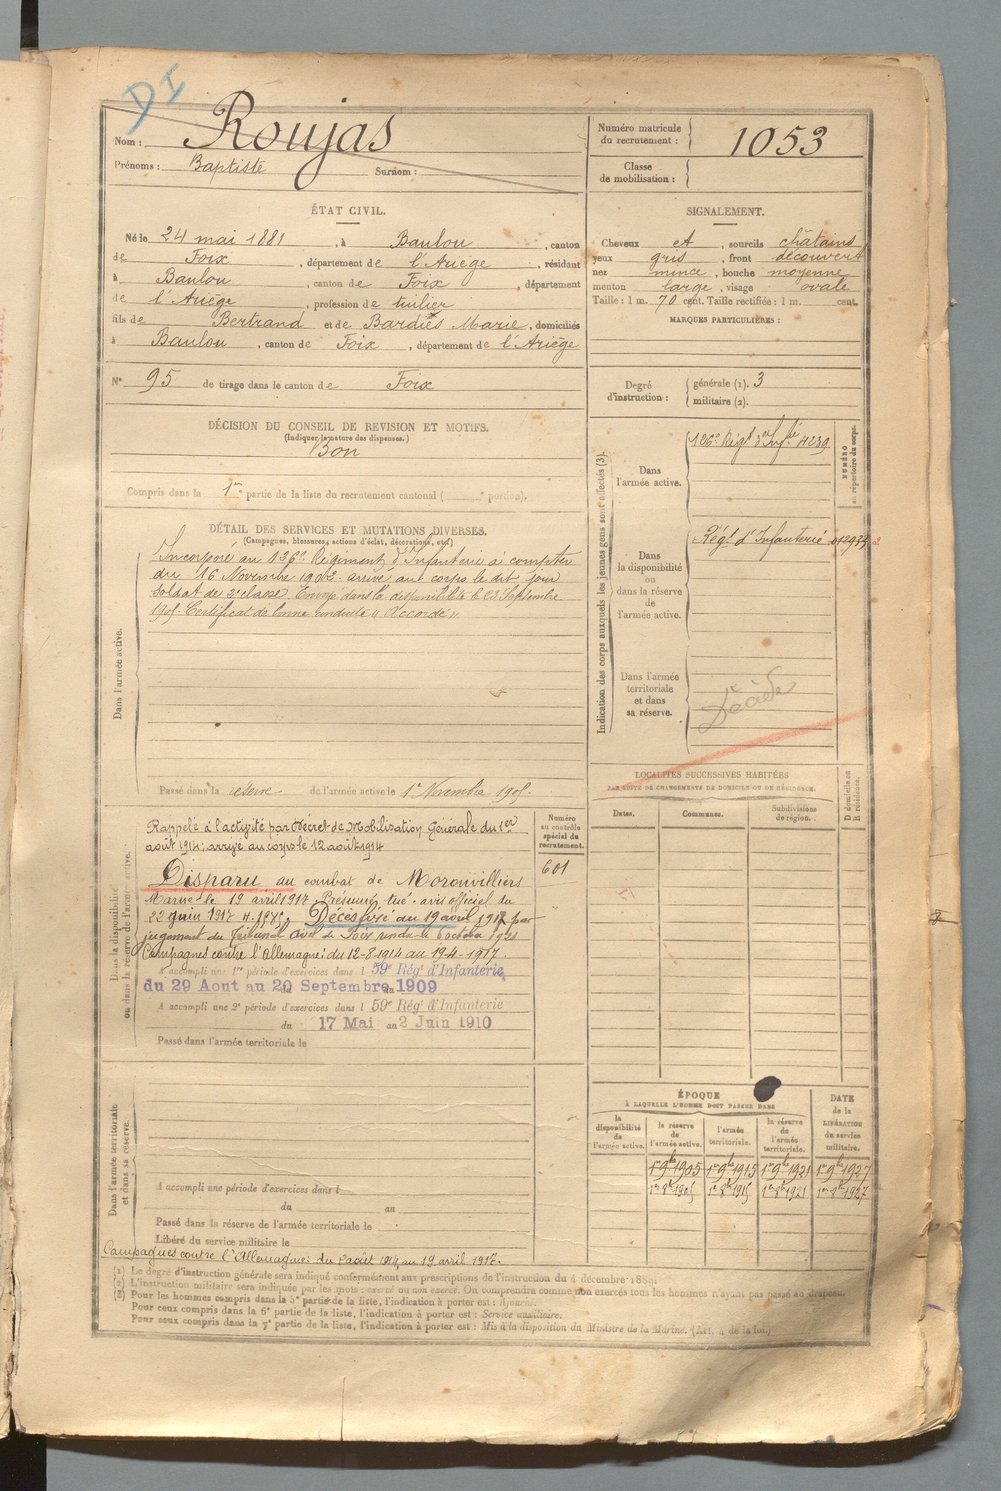 DI
Nom : Roujas
Prénoms : Baptiste Surnom :
Numéro matricule du recrutement : 1053
Classe de mobilisation :
ÉTAT CIVIL.
Né le 24 mai 1881, à Baulou, canton
de Foix, département de l'Ariége, résidant
à Baulou, canton de Foix, département
de l'Ariége, profession de tuilier
fils de Bertrand et de Bardiès Marie, domiciliés
à Baulou, canton de Foix, département de l'Ariége
N° 95 de tirage dans le canton de Foix
SIGNALEMENT.
Cheveux et, sourcils châtains
yeux gris, front découvert
nez mince, bouche moyenne
menton large, visage ovale
Taille : 1 m. 70 cent. Taille rectifiée : 1 m. cent.
MARQUES PARTICULIÈRES :
Degré d'instruction :
générale (1). 3
militaire (2).
DÉCISION DU CONSEIL DE REVISION ET MOTIFS.
(Indiquer la nature des dispenses.)
Bon
Compris dans la 1re partie de la liste du recrutement cantonal ( e portion).
DÉTAIL DES SERVICES ET MUTATIONS DIVERSES.
(Campagnes, blessures, actions d'éclat, décorations, etc.)
Dans l'armée active.
Incorporé au 126e Régiment d'Infanterie à compter
du 16 Novembre 1902. arrivé au corps le dit jour
soldat de 2e classe. Envoyé dans la disponibilité le 23 Septembre
1905. Certificat de bonne conduite " Accordé "
Passé dans la réserve de l'armée active le 1er Novembre 1905.
Indication des corps auxquels les jeunes gens sont affectés (3).
NUMÉRO au répertoire du corps.
Dans l'armée active.
126e Régt d'Infie 4239
Dans la disponibilité ou dans la réserve de l'armée active.
Régt d'Infanterie
Dans l'armée territoriale et dans sa réserve.
Décédé
LOCALITÉS SUCCESSIVES HABITÉES
PAR SUITE DE CHANGEMENTS DE DOMICILE OU DE RÉSIDENCE.
D domicile ou R résidence.
Dates. Communes. Subdivisions de région.
Dans la disponibilité ou dans la réserve de l'armée active.
Numéro au contrôle spécial du recrutement.
601
Rappelé à l'activité par Décret de Mobilisation Générale du 1er
août 1914 : arrivé au corps le 12 août 1914
Disparu au combat de Moronvilliers
Marne le 19 avril 1917. Présumé tué. avis officiel du
22 juin 1917
Décès fixé au 19 avril 1917 par
jugement du Tribunal civil de Foix rendu le 6 octobre 1921
Campagnes contre l'Allemagne : du 12-8-1914 au 19-4-1917.
A accompli une 1re période d'exercices dans l 59e Régt d'Infanterie
du 29 Aout au 20 Septembre 1909
A accompli une 2e période d'exercices dans l 59e Régt d'Infanterie
du 17 Mai au 2 Juin 1910
Passé dans l'armée territoriale le
Dans l'armée territoriale et dans sa réserve.
A accompli une période d'exercices dans l
du au
Passé dans la réserve de l'armée territoriale le
Libéré du service militaire le
Campagnes contre l'Allemagne : du 2 août 1914 au 19 avril 1917.
ÉPOQUE
À LAQUELLE L'HOMME DOIT PASSER DANS
la disponibilité de l'armée active.
la réserve de l'armée active.
l'armée territoriale.
la réserve de l'armée territoriale.
DATE de la LIBÉRATION du service militaire.
1er 9bre 1905 1er 9bre 1915 1er 9bre 1921 1er 9bre 1927
1er 8bre 1905 1er 8bre 1915 1er 8bre 1921 1er 8bre 1927
(1) Le degré d'instruction générale sera indiqué conformément aux prescriptions de l'instruction du 4 décembre 1889.
(2) L'instruction militaire sera indiquée par les mots : exercé ou non exercé. On comprendra comme non exercés tous les hommes n'ayant pas passé au drapeau.
(3) Pour les hommes compris dans la 5e partie de la liste, l'indication à porter est : Ajourné.
Pour ceux compris dans la 6e partie de la liste, l'indication à porter est : Service auxiliaire.
Pour ceux compris dans la 7e partie de la liste, l'indication à porter est : Mis à la disposition du Ministre de la Marine. (Art. 4 de la loi.)